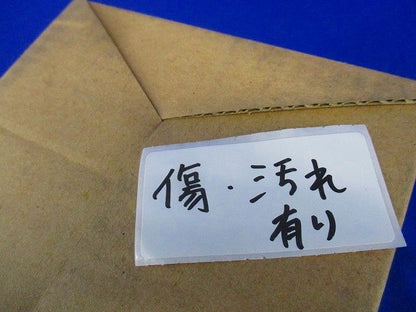 傷・汚れ
有り